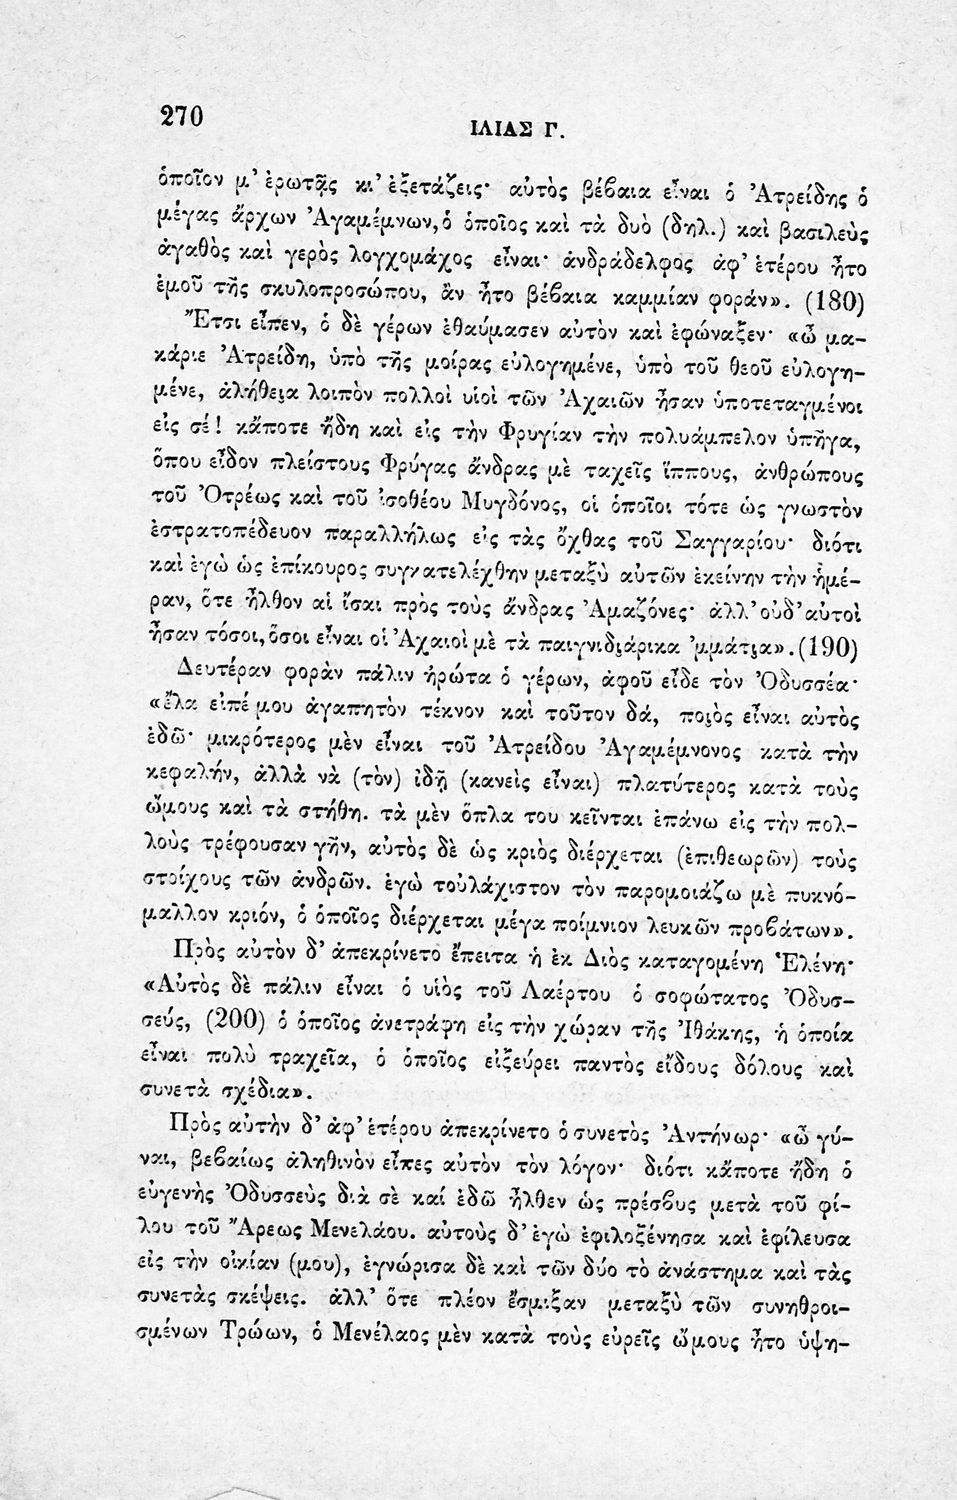 270
ΙΛΙΑΣ Γ.
ὁποῖον μ' ἐρωτᾷς κι' ἐξετάζεις· αὐτὸς βέβαια εἶναι ὁ Ἀτρείδης ὁ
μέγας ἄρχων Ἀγαμέμνων, ὁ ὁποῖος καὶ τὰ δυὸ (δηλ.) καὶ βασιλεὺς
ἀγαθὸς καὶ γερὸς λογχομάχος εἶναι· ἀνδράδελφος ἀφ' ἑτέρου ἦτο
ἐμοῦ τῆς σκυλοπροσώπου, ἂν ἦτο βέβαια καμμίαν φοράν». (180)
Ἔτσι εἶπεν, ὁ δὲ γέρων ἐθαύμασεν αὐτὸν καὶ ἐφώναξεν· «ὦ μα-
κάριε Ἀτρείδη, ὑπὸ τῆς μοίρας εὐλογημένε, ὑπὸ τοῦ θεοῦ εὐλογη-
μένε, ἀλήθεια λοιπὸν πολλοὶ υἱοὶ τῶν Ἀχαιῶν ἦσαν ὑποτεταγμένοι
εἰς σέ! κἄποτε ἤδη καὶ εἰς τὴν Φρυγίαν τὴν πολυάμπελον ὑπῆγα,
ὅπου εἶδον πλείστους Φρύγας ἄνδρας μὲ ταχεῖς ἵππους, ἀνθρώπους
τοῦ Ὀτρέως καὶ τοῦ ἰσοθέου Μυγδόνος, οἱ ὁποῖοι τότε ὡς γνωστὸν
ἐστρατοπέδευον παραλλήλως εἰς τὰς ὄχθας τοῦ Σαγγαρίου· διότι
καὶ ἐγὼ ὡς ἐπίκουρος συγκατελέχθην μεταξὺ αὐτῶν ἐκείνην τὴν ἡμέ-
ραν, ὅτε ἦλθον αἱ ἴσαι πρὸς τοὺς ἄνδρας Ἀμαζόνες· ἀλλ' οὐδ' αὐτοὶ
ἦσαν τόσοι, ὅσοι εἶναι οἱ Ἀχαιοὶ μὲ τὰ παιγνιδιάρικα 'μμάτια». (190)
Δευτέραν φορὰν πάλιν ἠρώτα ὁ γέρων, ἀφοῦ εἶδε τὸν Ὀδυσσέα·
«ἔλα εἰπέ μου ἀγαπητὸν τέκνον καὶ τοῦτον δά, ποιὸς εἶναι αὐτὸς
ἐδῶ· μικρότερος μὲν εἶναι τοῦ Ἀτρείδου Ἀγαμέμνονος κατὰ τὴν
κεφαλήν, ἀλλὰ νὰ (τὸν) ἰδῇ (κανεὶς εἶναι) πλατύτερος κατὰ τοὺς
ὤμους καὶ τὰ στήθη. τὰ μὲν ὅπλα του κεῖνται ἐπάνω εἰς τὴν πολ-
λοὺς τρέφουσαν γῆν, αὐτὸς δὲ ὡς κριὸς διέρχεται (ἐπιθεωρῶν) τοὺς
στοίχους τῶν ἀνδρῶν. ἐγὼ τοὐλάχιστον τὸν παρομοιάζω μὲ πυκνό-
μαλλον κριόν, ὁ ὁποῖος διέρχεται μέγα ποίμνιον λευκῶν προβάτων».
Πρὸς αὐτὸν δ' ἀπεκρίνετο ἔπειτα ἡ ἐκ Διὸς καταγομένη Ἑλένη·
«Αὐτὸς δὲ πάλιν εἶναι ὁ υἱὸς τοῦ Λαέρτου ὁ σοφώτατος Ὀδυσ-
σεύς, (200) ὁ ὁποῖος ἀνετράφη εἰς τὴν χώραν τῆς Ἰθάκης, ἡ ὁποία
εἶναι πολὺ τραχεῖα, ὁ ὁποῖος εἰξεύρει παντὸς εἴδους δόλους καὶ
συνετὰ σχέδια».
Πρὸς αὐτὴν δ' ἀφ' ἑτέρου ἀπεκρίνετο ὁ συνετὸς Ἀντήνωρ· «ὦ γύ-
ναι, βεβαίως ἀληθινὸν εἶπες αὐτὸν τὸν λόγον· διότι κἄποτε ἤδη ὁ
εὐγενὴς Ὀδυσσεὺς διὰ σὲ καί ἐδῶ ἦλθεν ὡς πρέσβυς μετὰ τοῦ φί-
λου τοῦ Ἄρεως Μενελάου. αὐτοὺς δ' ἐγὼ ἐφιλοξένησα καὶ ἐφίλευσα
εἰς τὴν οἰκίαν (μου), ἐγνώρισα δὲ καὶ τῶν δύο τὸ ἀνάστημα καὶ τὰς
συνετὰς σκέψεις. ἀλλ' ὅτε πλέον ἔσμιξαν μεταξὺ τῶν συνηθροι-
σμένων Τρώων, ὁ Μενέλαος μὲν κατὰ τοὺς εὐρεῖς ὤμους ἦτο ὑψη-